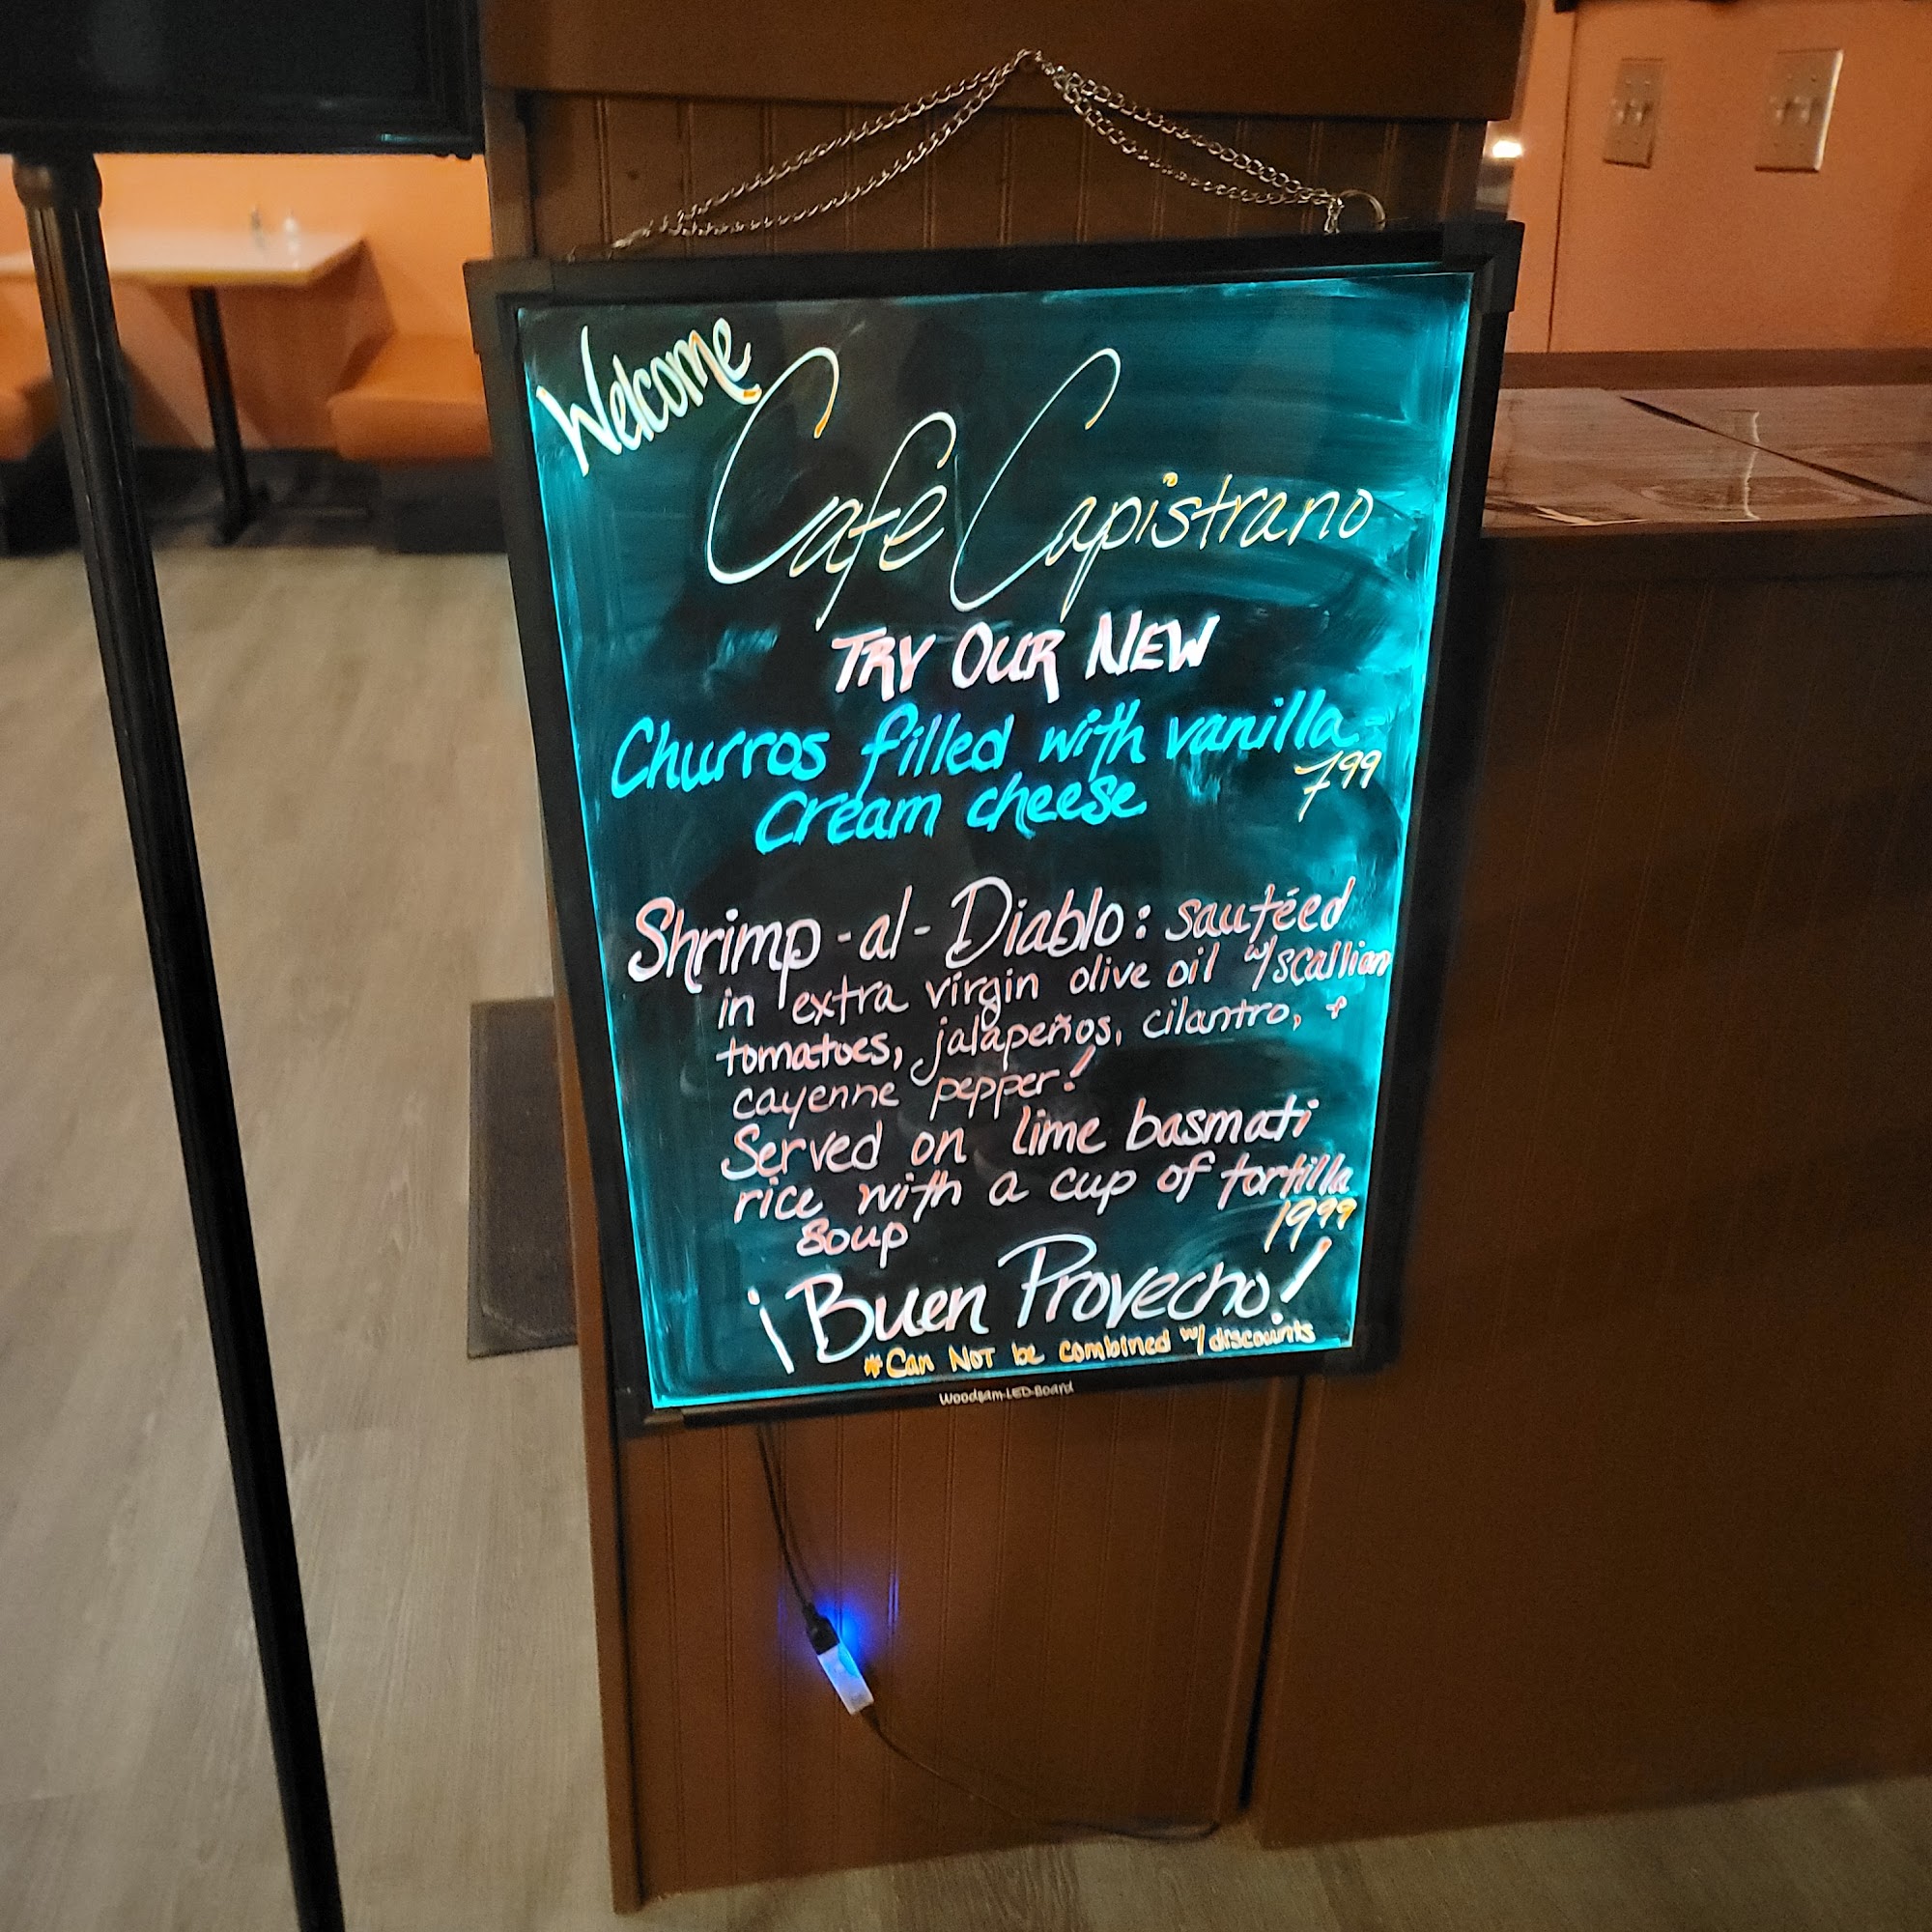 Welcome
Cafe Capistrano
TRY OUR NEW
Churros filled with vanilla
cream cheese 7.99
Shrimp-al-Diablo: sautéed
in extra virgin olive oil w/scallion
tomatoes, jalapeños, cilantro, +
cayenne pepper!
Served on lime basmati
rice with a cup of tortilla
soup 19.99
¡Buen Provecho!
*Can NOT be combined w/ discounts
Woodsam-LED-Board